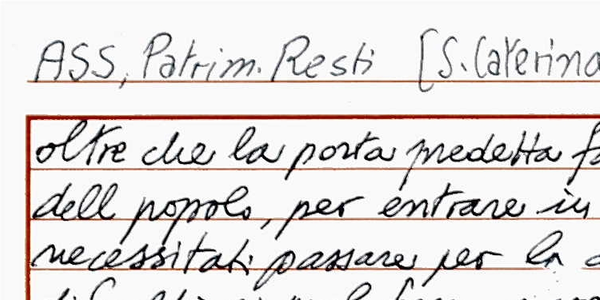 ASS, Patrim. Resti [S. Caterina
oltre che la porta predetta
dell popolo, per entrare in
necessitati passare per la